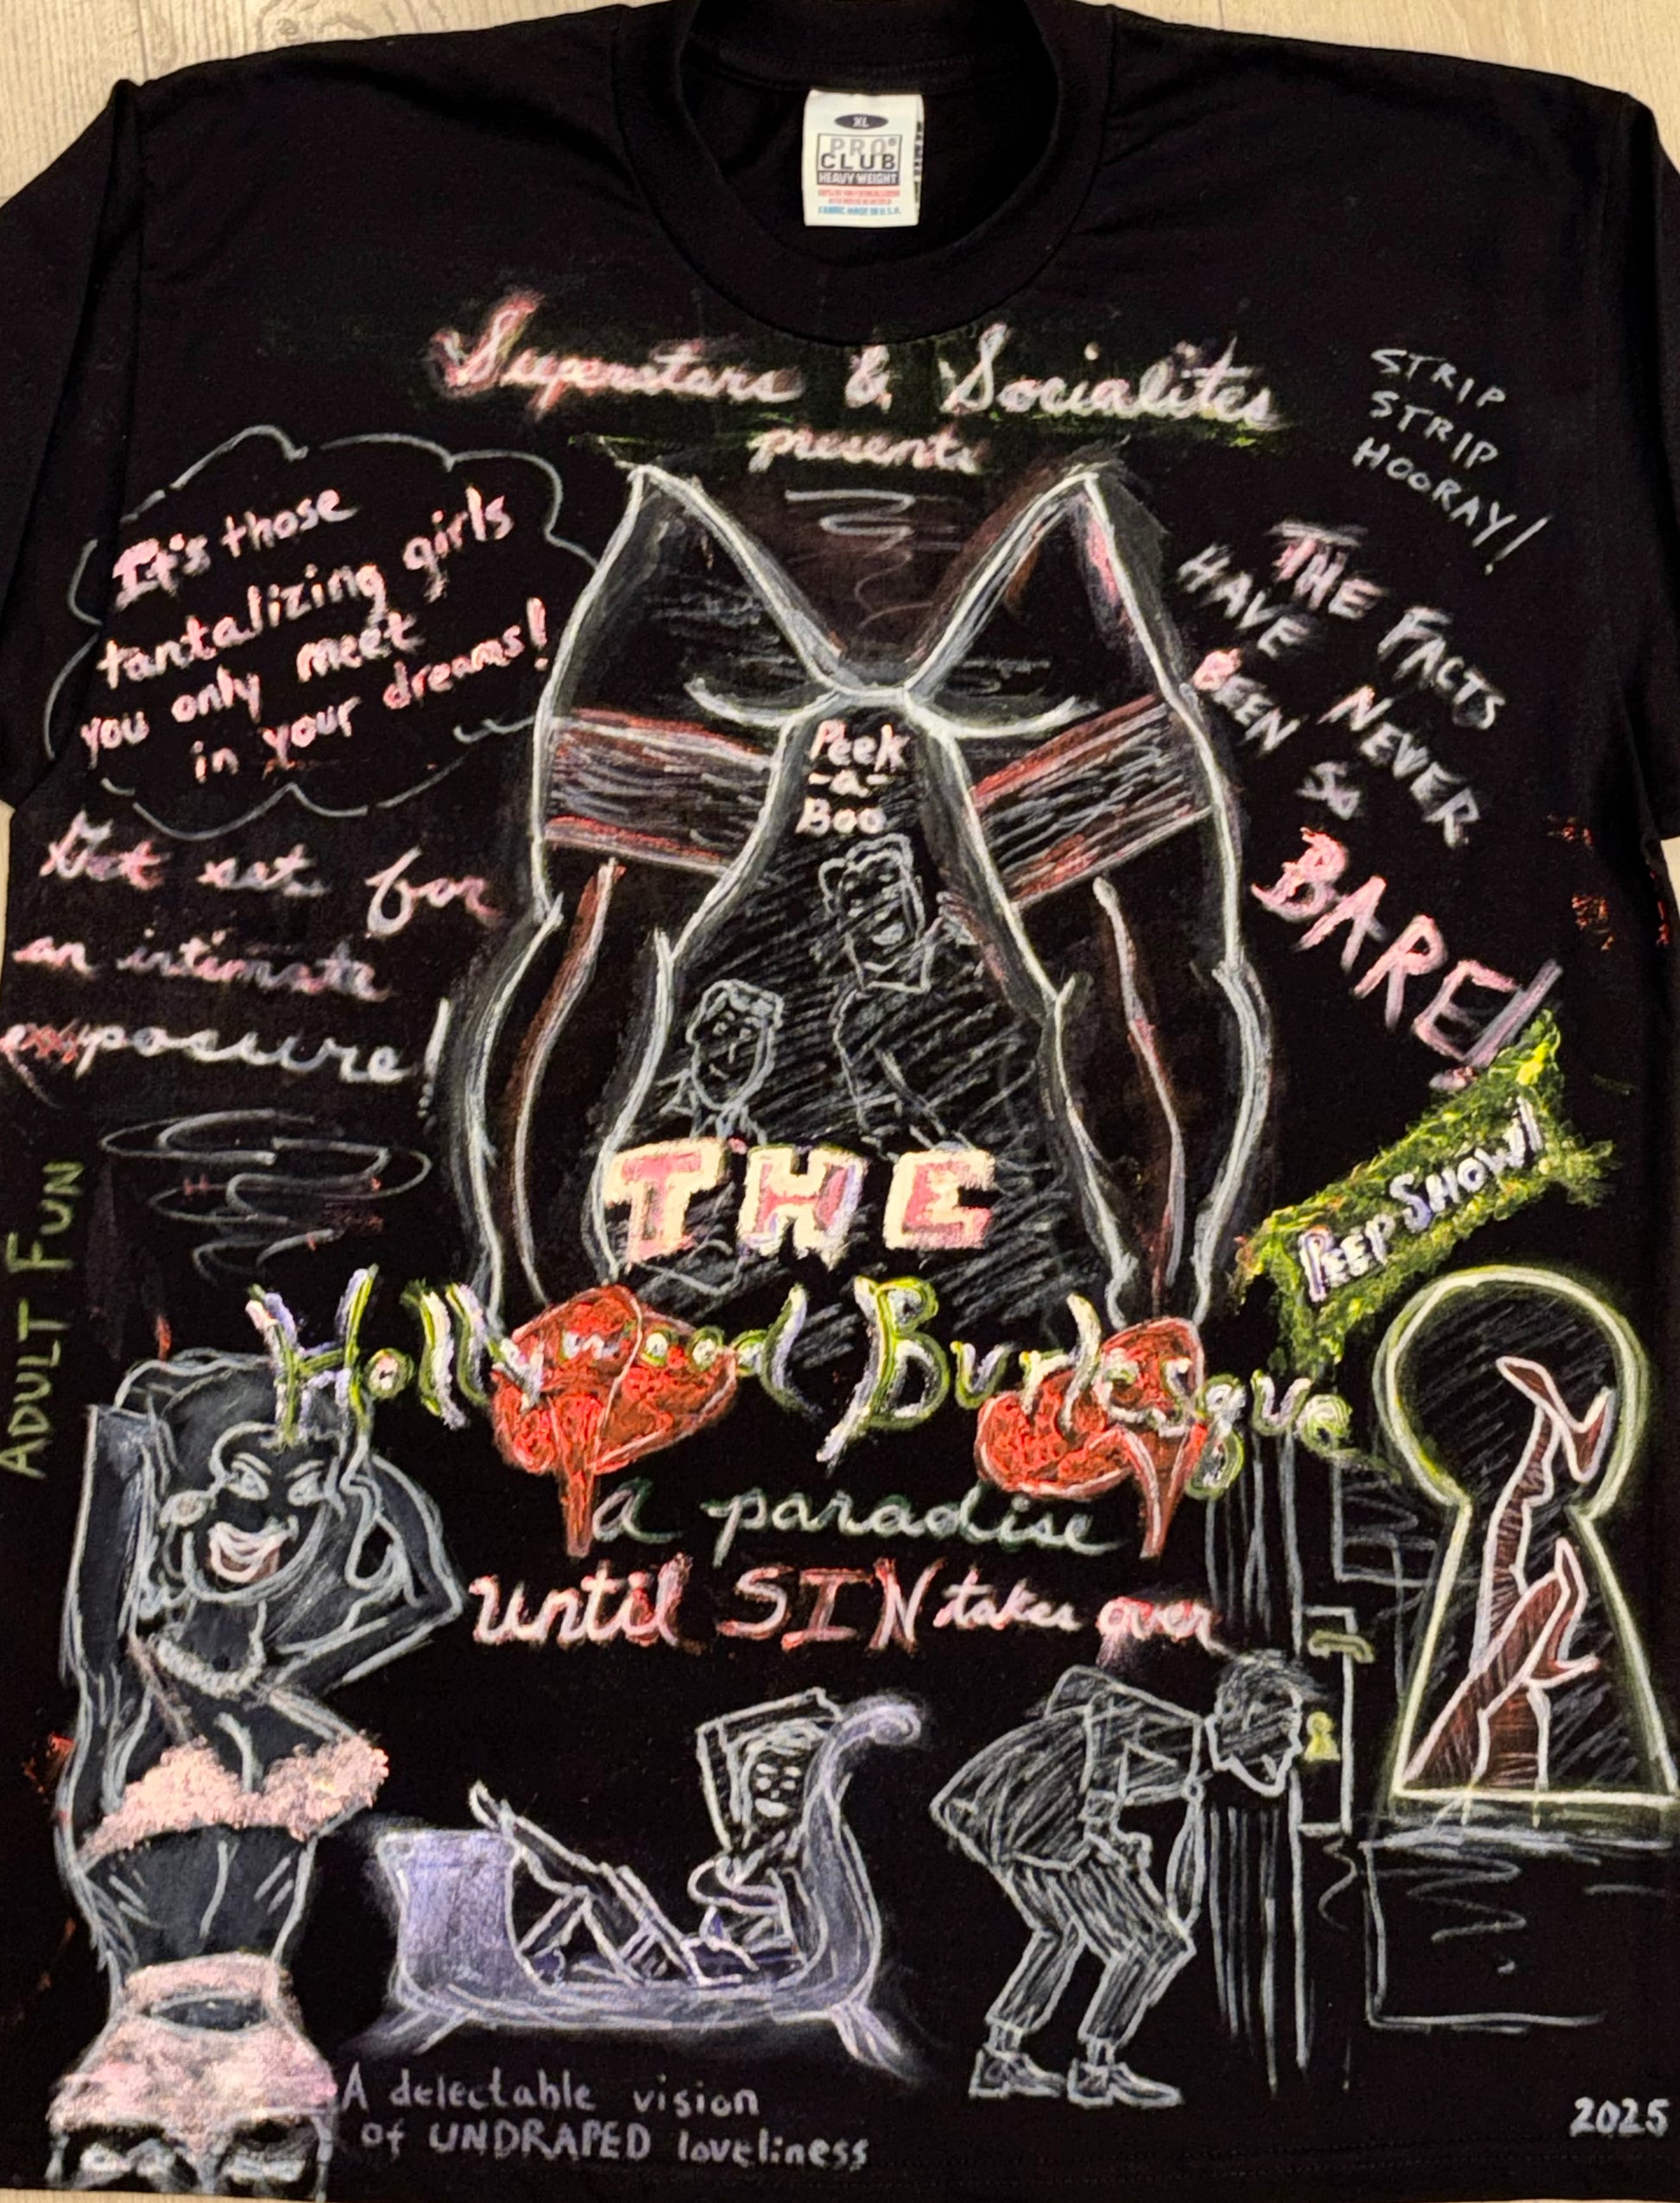 XL
PRO®
CLUB
HEAVY WEIGHT
FABRIC MADE IN U.S.A.
Superstars & Socialites
presents
STRIP
STRIP
HOORAY!
It's those
tantalizing girls
you only meet
in your dreams!
THE FACTS
HAVE NEVER
BEEN SO
BARE!
Peek
-a-
Boo
Get set for
an intimate
exposure!
PEEP SHOW!!
THE
Hollywood Burlesque
ADULT FUN
a paradise
until SIN takes over
A delectable vision
of UNDRAPED loveliness
2025